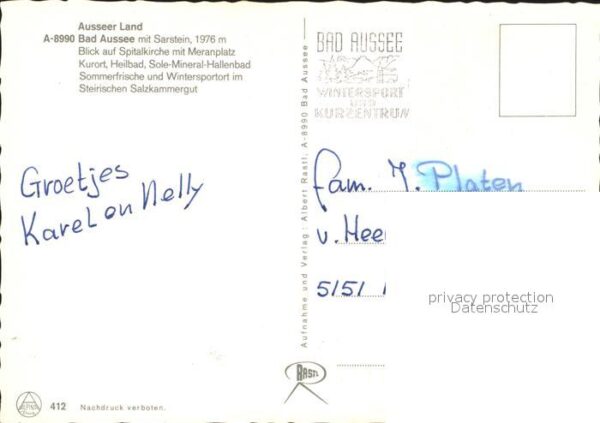 Ausseer Land
A-8990 Bad Aussee mit Sarstein, 1976 m
Blick auf Spitalkirche mit Meranplatz
Kurort, Heilbad, Sole-Mineral-Hallenbad
Sommerfrische und Wintersportort im
Steirischen Salzkammergut
BAD AUSSEE
WINTERSPORT
UND
KURZENTRUM
Groetjes
Karel en Nelly
Aufnahme und Verlag: Albert Rastl, A-8990 Bad Aussee
fam. J. Platen
v. Hee
5151
privacy protection
Datenschutz
RASTL
412 Nachdruck verboten.